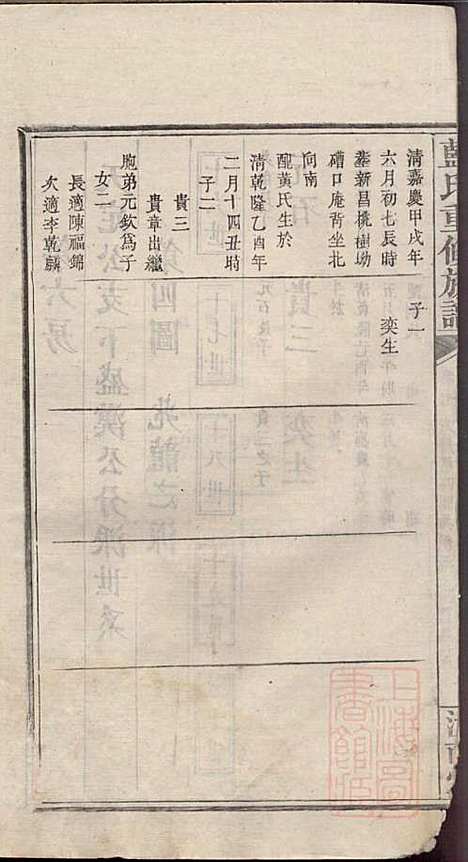 藍氏重修族譜
清嘉慶甲戌年
六月初七辰時
塟新昌橈樹坳
磜口庵背坐北
向南
配黃氏生於
清乾隆乙酉年
二月十四丑時
子二
貴三
貴章出繼
胞弟元欽為子
女二
長適陳福錦
次適李乾麟
子一
奕生
上海圖
書館藏